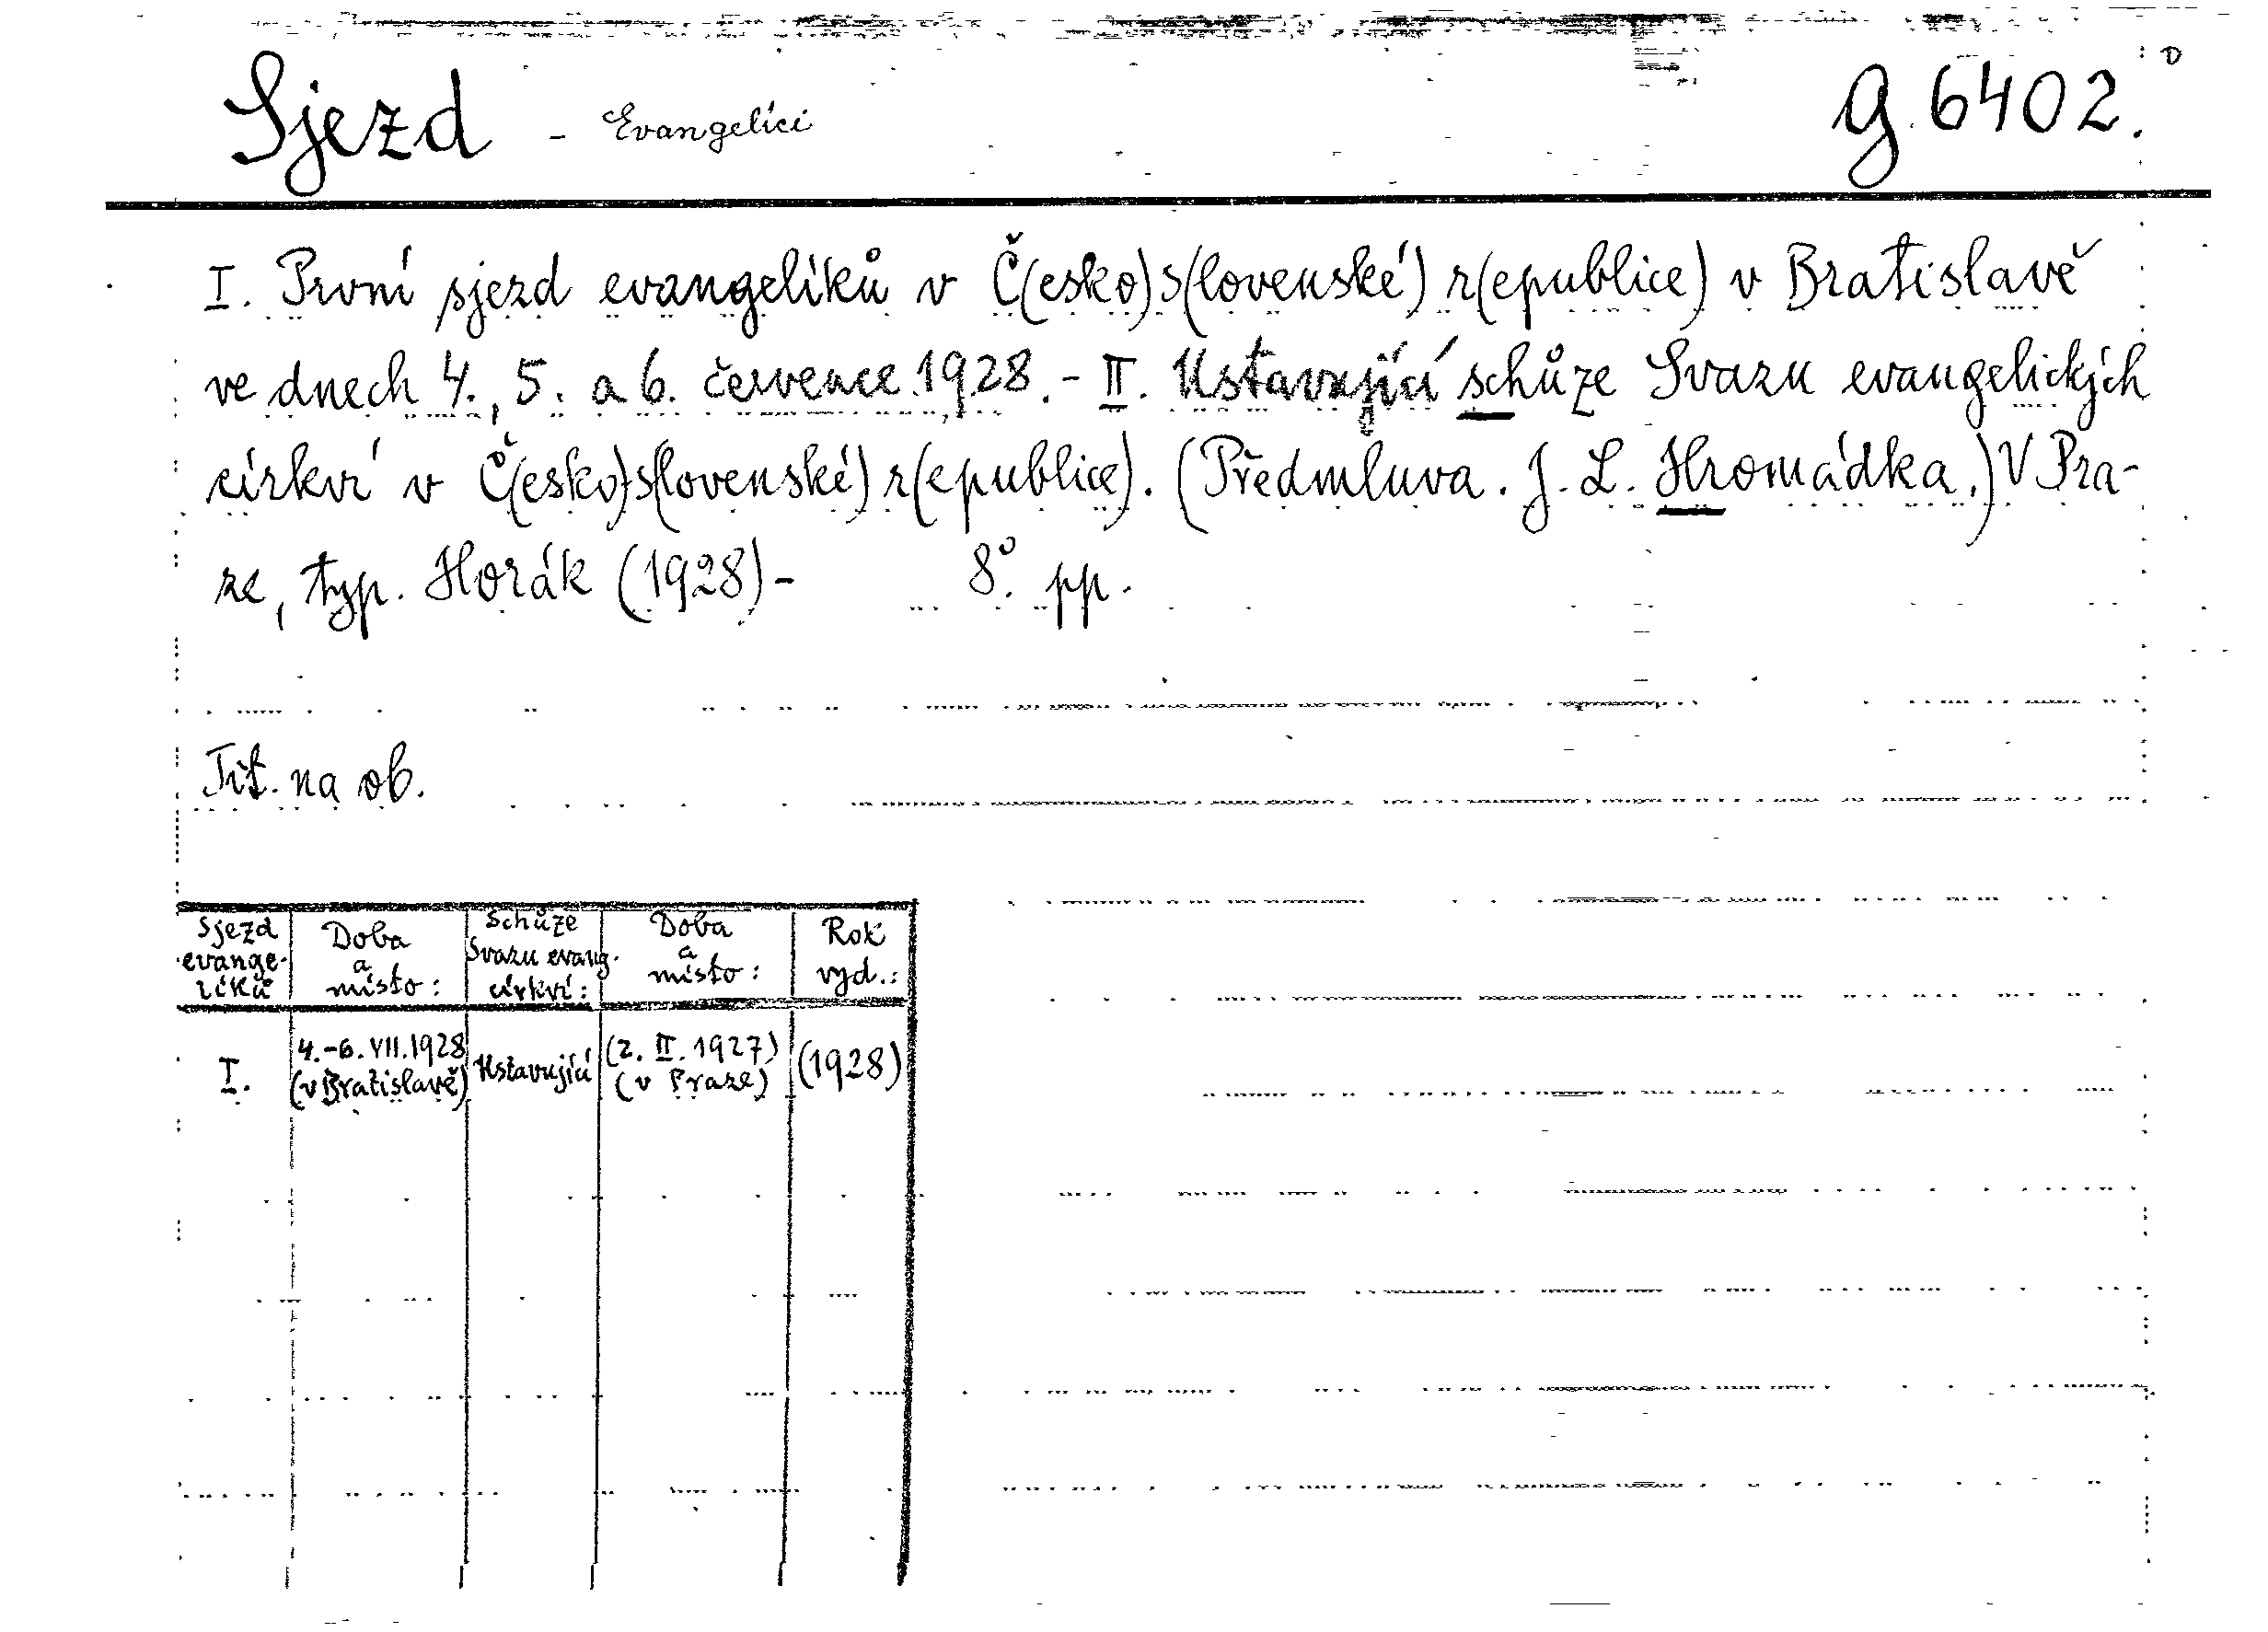 Sjezd - Evangelíci G. 6402.
I. První sjezd evangelíků v Č(esko)s(lovenské) r(epublice) v Bratislavě
ve dnech 4., 5. a 6. července 1928. - II. Ustavující schůze Svazu evangelických
církví v Č(esko)s(lovenské) r(epublice). (Předmluva. J. L. Hromádka.) V Pra-
ze, typ. Horák (1928) - 8°. pp.
Tit. na ob.
Sjezd evange-líků Doba a místo: Schůze Svazu evang. církví: Doba a místo: Rok vyd.:
I. 4.-6. VII. 1928 (v Bratislavě) Ustavující (2. II. 1927) (v Praze) (1928)